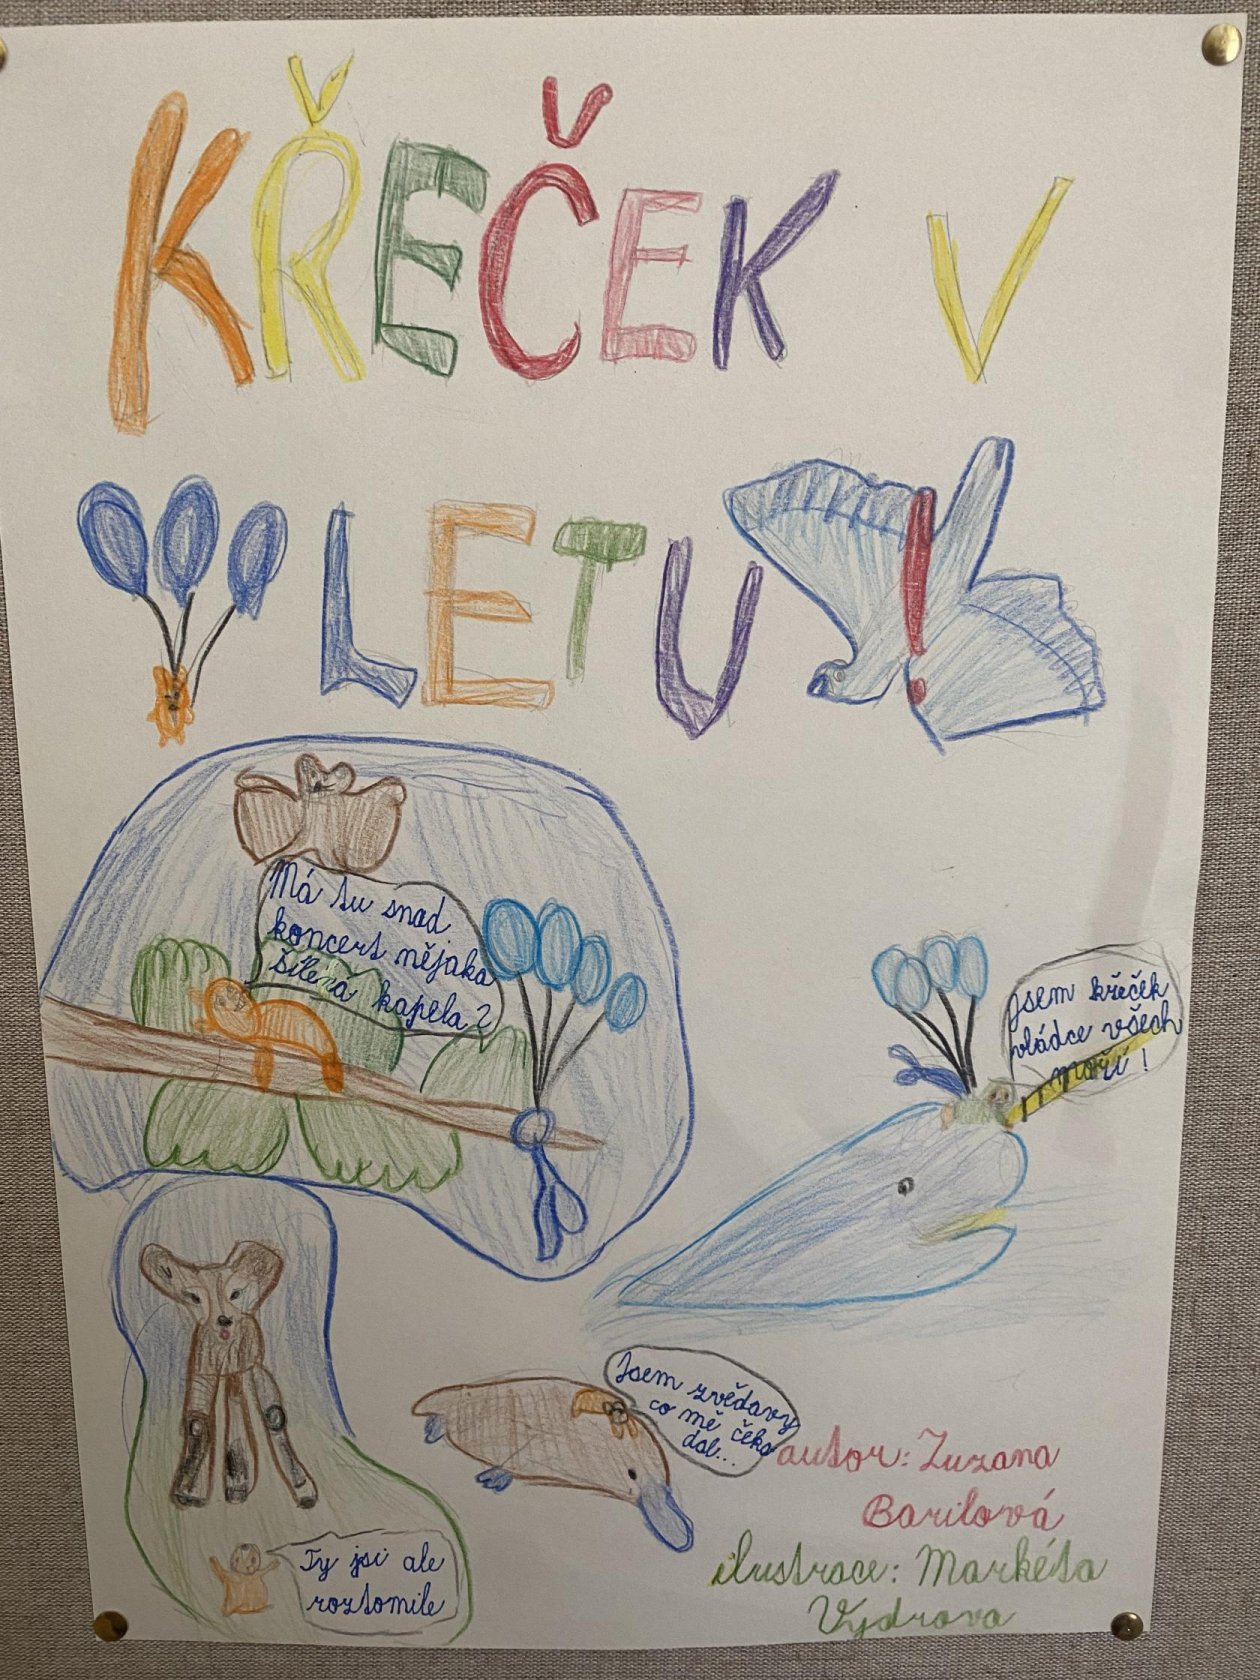 KŘEČEK V
LETU
Má tu snad
koncert nějaká
šílená kapela?
Jsem křeček
vládce všech
moří!
Jsem zvědavy
co mě čeká
dál...
Ty jsi ale
roztomile
autor: Zuzana
Barilová
ilustrace: Markéta
Vydrova